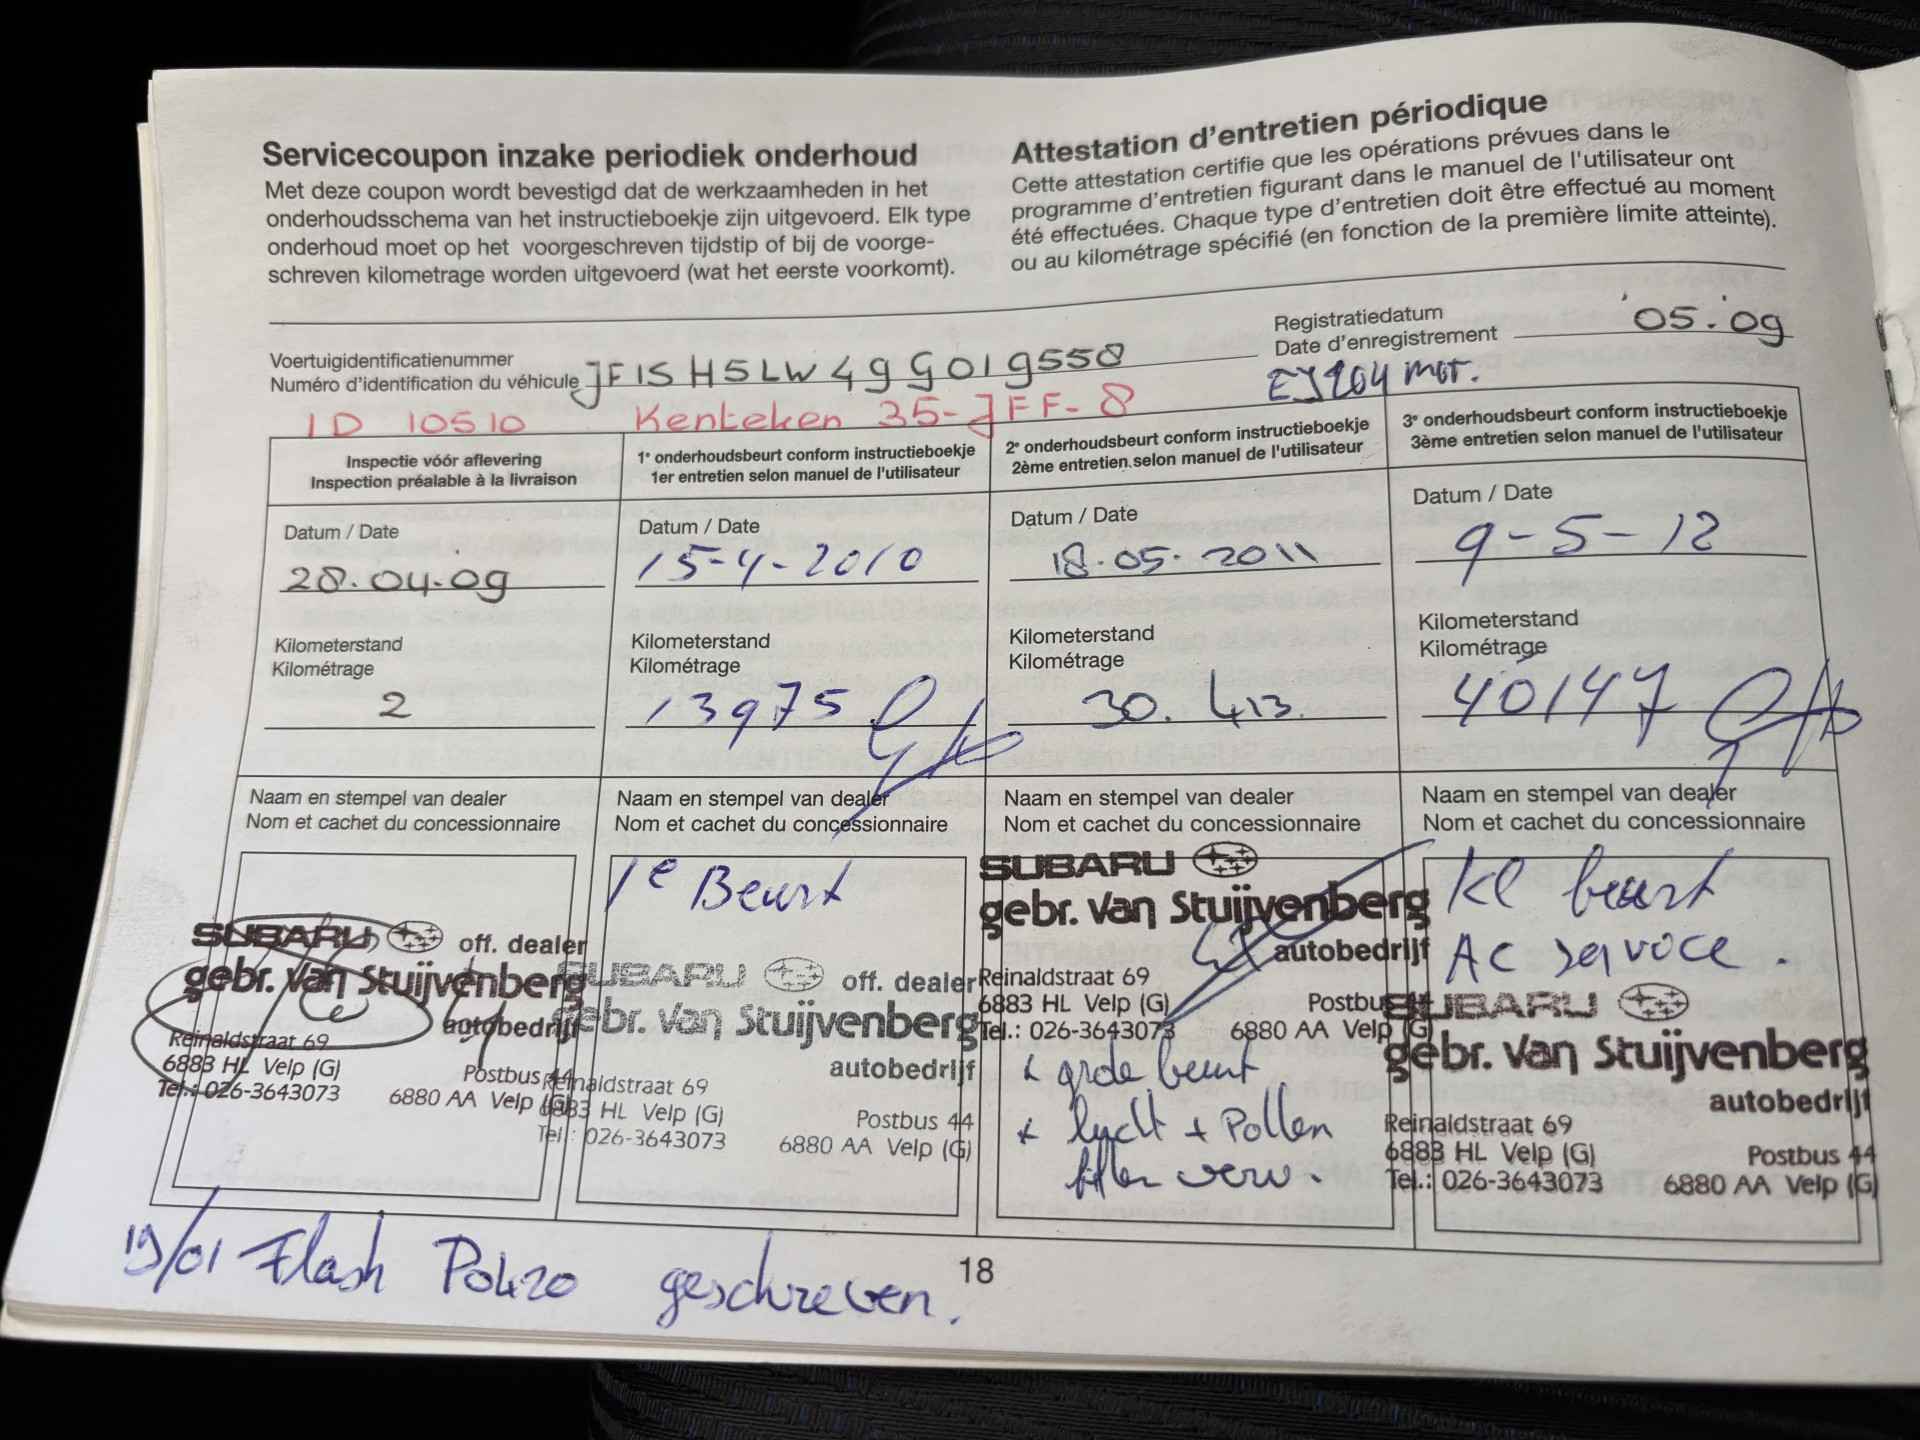 Servicecoupon inzake periodiek onderhoud
Met deze coupon wordt bevestigd dat de werkzaamheden in het
onderhoudsschema van het instructieboekje zijn uitgevoerd. Elk type
onderhoud moet op het voorgeschreven tijdstip of bij de voorge-
schreven kilometrage worden uitgevoerd (wat het eerste voorkomt).
Attestation d'entretien périodique
Cette attestation certifie que les opérations prévues dans le
programme d'entretien figurant dans le manuel de l'utilisateur ont
été effectuées. Chaque type d'entretien doit être effectué au moment
ou au kilométrage spécifié (en fonction de la première limite atteinte).
Voertuigidentificatienummer
Numéro d'identification du véhicule JF1SH5LW49G019558
Registratiedatum
Date d'enregistrement '05.'09
EJ204 mot.
ID 10510 Kenteken 35-JFF-8
Inspectie vóór aflevering
Inspection préalable à la livraison
Datum / Date
28.04.09
Kilometerstand
Kilométrage
2
Naam en stempel van dealer
Nom et cachet du concessionnaire
SUBARU off. dealer
gebr. van Stuijvenberg
autobedrijf
Reinaldstraat 69
6883 HL Velp (G)
Tel.: 026-3643073
Postbus 44
6880 AA Velp (G)
1e onderhoudsbeurt conform instructieboekje
1er entretien selon manuel de l'utilisateur
Datum / Date
15-4-2010
Kilometerstand
Kilométrage
13975
Naam en stempel van dealer
Nom et cachet du concessionnaire
1e Beurt
SUBARU off. dealer
gebr. van Stuijvenberg
autobedrijf
Reinaldstraat 69
6883 HL Velp (G)
Tel.: 026-3643073
Postbus 44
6880 AA Velp (G)
2e onderhoudsbeurt conform instructieboekje
2ème entretien selon manuel de l'utilisateur
Datum / Date
18.05.2011
Kilometerstand
Kilométrage
30.413
Naam en stempel van dealer
Nom et cachet du concessionnaire
SUBARU
gebr. van Stuijvenberg
autobedrijf
Reinaldstraat 69
6883 HL Velp (G)
Tel.: 026-3643073
Postbus 44
6880 AA Velp (G)
* grote beurt
* lucht + Pollen
filter verv.
3e onderhoudsbeurt conform instructieboekje
3ème entretien selon manuel de l'utilisateur
Datum / Date
9-5-12
Kilometerstand
Kilométrage
40147
Naam en stempel van dealer
Nom et cachet du concessionnaire
Kl beurt
AC service.
SUBARU
gebr. van Stuijvenberg
autobedrijf
Reinaldstraat 69
6883 HL Velp (G)
Tel.: 026-3643073
Postbus 44
6880 AA Velp (G)
19/01 Flash P0420 geschreven.
18